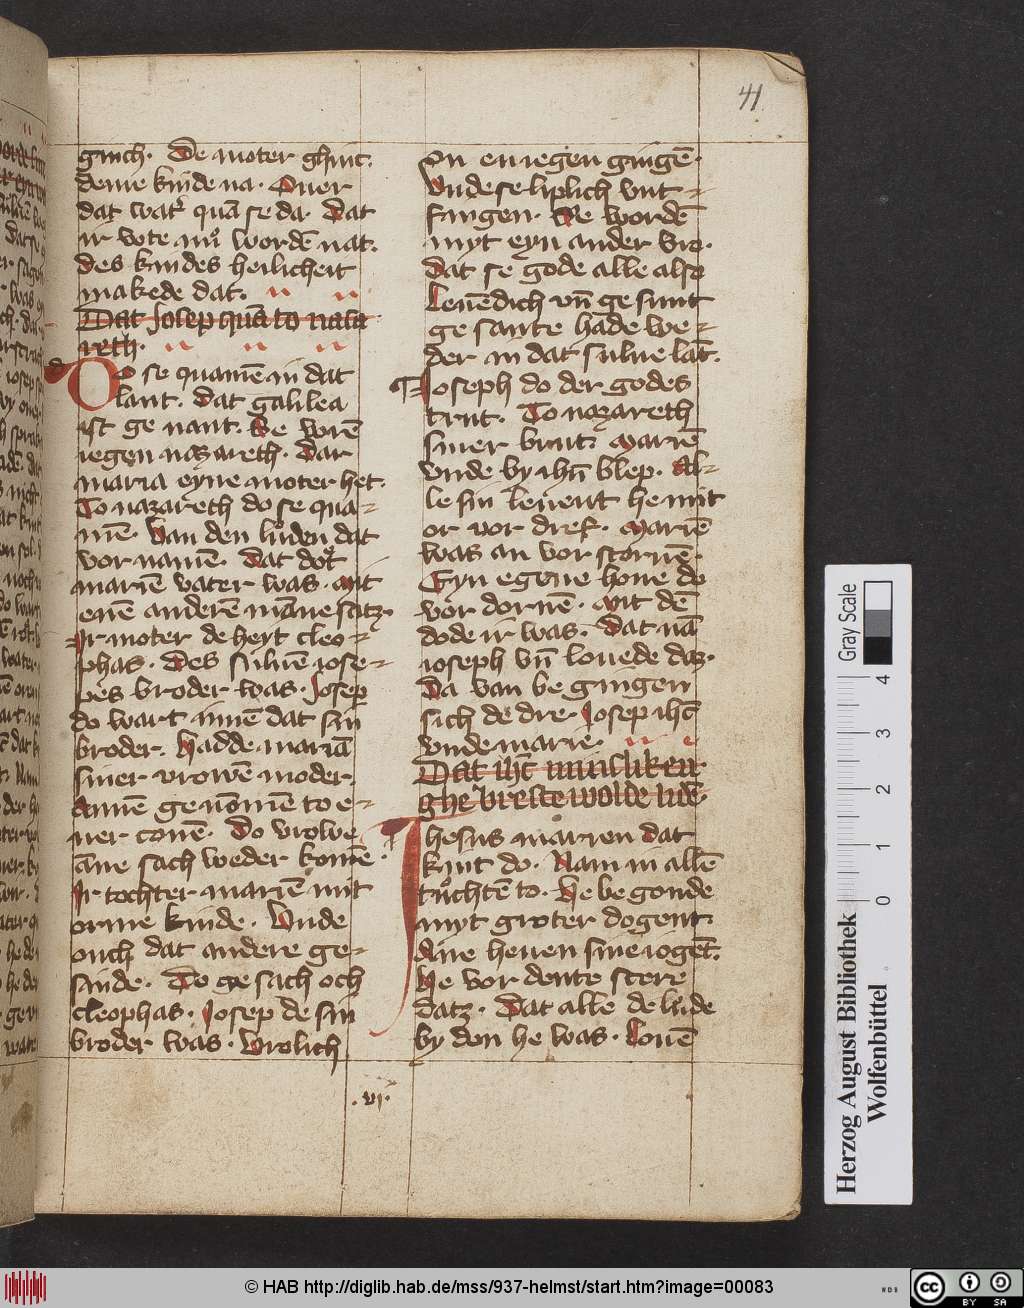 41
ginch. De moter ghinc.
deme kinde na. Ouer
dat watˀ quā se da. Dat
ir vote nuͦ wordē nat.
des kindes heilicheit
makede dat.
Dat Josep quā to naza
reth.
Do se quamē in dat
lant. Dat galilea
ist ge nant. Se vorē
iegen nazareth. Dar
maria eyne moter het.
To nazareth do se qua-
mē. Van den luͤden dat
vor namē. Dat dotˀ
mariē vater was. Mit
enē anderē māne satz.
Ir moter de heyt cleo-
phas. Des suluē iose-
pes broder was. Josep
do wart innē dat sin
broder. Hadde mariā
siner vrowē moder.
Amē ge nomē to e-
ner conē. Do vrowe
āne sach weder komē.
Ir tochter mariē mit
orme kinde. Vnde
ouch dat andere ge-
sinde. To ge sach och
cleophas. Josep de sin
broder was. Vrolich
On eniegen gingē.
Vnde se liplich vnt-
fingen. Se wordē
myt eyn ander vro.
Dat se gode alle also
Leuēdich vn̄ ge sunt
ge sante hade we-
der in dat sulue lāt.
Joseph do der godes
trut. To nazareth
siner brut. Mariē
vnde by ihū blep. Al-
le sin leuent he mit
or vor dref. Mariē
was an vor storuē.
Eyn egene houe do
vor dornē. Mit dē
dode ir was. Dat nā
ioseph vn̄ louede daz.
Da van be gingen
sich de dre. Josep ihc̄
vnde marie.
Dat ihc̄ minsliken
ghe breste wolde lidē.
Jhesus marien dat
kint do. Nam in allē
tuͦchtē to. He be gonde
myt groter dogent.
dine heuen sine iogēt.
He vor dente stere
datz. Dat alle de luͤde
by den he was. Louē
.vi.
Gray Scale
0 1 2 3 4
Herzog August Bibliothek
Wolfenbüttel
© HAB http://diglib.hab.de/mss/937-helmst/start.htm?image=00083
WDB
cc BY SA